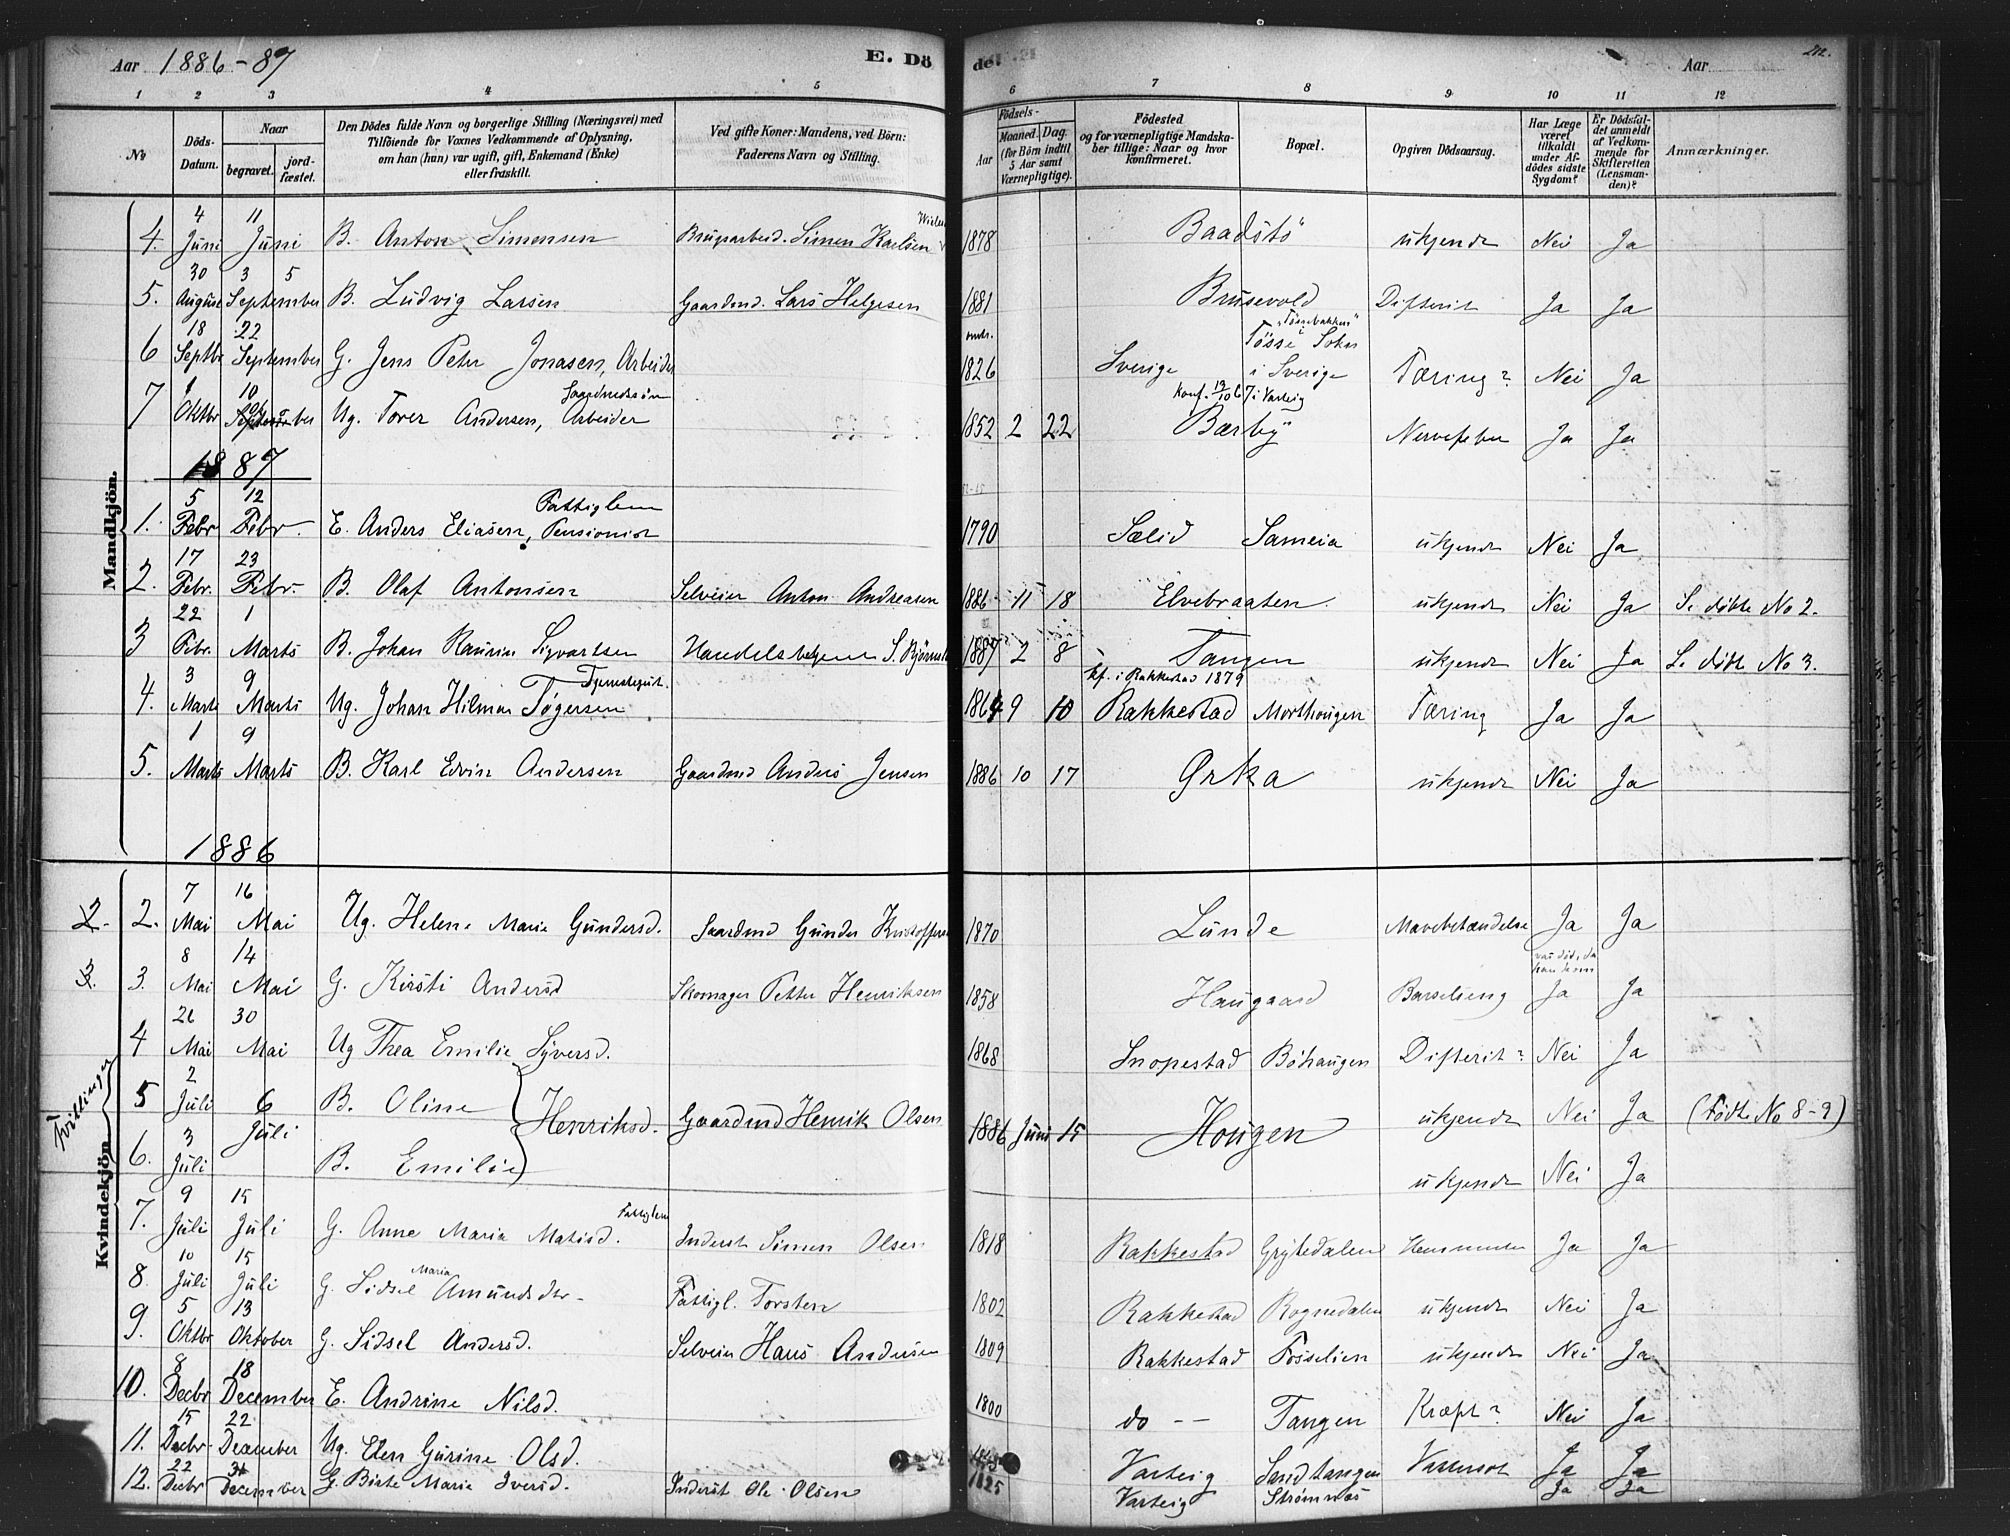 Aar 1886-87 E. Dö
de. Aar 212.
1 2 3 4 5 6 7 8 9 10 11 12
No Döds-Datum. Naar begravet. jord-fæstet. Den Dödes fulde Navn og borgerlige Stilling (Næringsvei) med Tilföiende for Voxnes Vedkommende af Oplysning, om han (hun) var ugift, gift, Enkemand (Enke) eller fraskilt. Ved gifte Koner: Mandens, ved Börn: Faderens Navn og Stilling. Födsels- Aar Maaned. Dag. (for Börn indtil 5 Aar samt Værnepligtige). Födested og for værnepligtige Mandskaber tillige: Naar og hvor konfirmeret. Bopæl. Opgiven Dödsaarsag. Har Læge været tilkaldt under Afdödes sidste Sygdom? Er Dödsfaldet anmeldt af Vedkommende for Skifteretten (Lensmanden)? Anmærkninger.
Mandkjön.
4. 4 Juni 11 Juni B. Anton Simensen Brugsarbeid. Simen Karlsen 1878 Baadstö ukjendt Nei Ja
5. 30 August 3 5 September B. Ludvig Larsen Gaardmd. Lars Helgesen 1881 Brusevold Difterit Ja Ja
6 18 Septbr 22 September G. Jens Peter Jonasen, Arbeider omtr. 1826 Sverige "Tössebakken" i Tösse Sokn i Sverige Tæring? Nei Ja
7 Oktbr 10 Ug. Tover Andersen, Gaardmandssön Arbeider 1852 2 22 Konf. 13/10 67 i Varteig Bærby Nervefeber Ja Ja
1887
1. 5 Febr 12 Febr. E. Anders Eliasen, Fattiglem Pensionist 1790 Sælid Sameia ukjendt Nei Ja
2. 17 Febr. 23 Febr. B. Olaf Antonsen Selveier Anton Andreasen 1886 11 18 Elvebraaten. ukjendt Nei Ja Se döbte No 2.
3 22 Febr. 1 Marts B. Johan Laurin Sigvartsen 1887 2 8 Tangen ukjendt Nei Ja Se döbte No 3.
4. 3 Marts 9 Marts Ug. Johan Hilmar Tögersen Tjenestegut. 1864 9 10 kf. i Rakkestad 1879 Rakkestad Morthougen Tæring Ja Ja
5. 1 Marts 9 Marts B. Karl Edvin Andersen Gaardmd Anders Jensen 1886 10 17 Grka ukjendt Nei Ja
1886
Kvindekjön
2. 2. 7 Mai 16 Mai Ug. Helene Marie Gundersd. Gaardmd Gunder Kristoffersen 1870 Lunde Mavebetændelse Ja Ja
3. 3. 8 Mai 14 Mai G. Kirsti Andersd Skomager Petter Henriksen 1858 Haugaard Barselseng var död, da han kom Ja Ja
4 26 Mai 30 Mai Ug Thea Emilie Syversd. 1868 Snopestad Böhaugen Difterit? Nei Ja
Tvillinger
5 2 Juli 6 Juli B. Oline Henriksd. Gaardmd Henrik Olsen 1886 Juni 15 Hougen ukjendt Nei Ja (Födte No 8-9)
6. 3 Juli B. Emilie ukjendt Nei Ja
7. 9 Juli 15 Juli G. Anne Maria Matisd. Fattiglem Inderst Simen Olsen 1818 Rakkestad Grytedalen Ja Ja
8. 10 Juli 15 Juli G. Sidsel Maria Amundsdtr. Fattigl. Torsten 1802 Rakkestad Rognedalen ukjendt Nei Ja
9. 5 Oktbr 13 Oktober G. Sidsel Andersd. Selveier Hans Andersen 1809 Rakkestad Fosselien ukjendt Nei Ja
10. 8 Decbr 18 December E. Andrine Nilsd. 1800 do -- Tangen Kræft? Nei Ja
11. 15 Decbr 22 December Ug. Elen Gurine Olsd. Varteig Sandtangen Vattersot Ja Ja
12. 22 Decbr 31 December G. Birte Marie Iversd. Inderst Ole Olsen 1825 Varteig Strömnæs Ja Ja